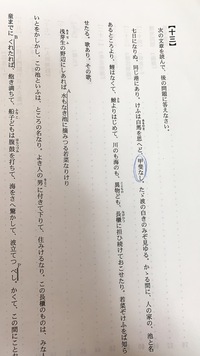 【十三】
次の文章を読んで、後の問題に答えなさい。
七日になりぬ。同じ港にあり。けふは白馬を思へど、甲斐なし。たゞ波の白きのみぞ見ゆる。かゝる間に、人の家の、池と名
あるところより、鯉はなくて、鮒よりはじめて、川のも海のも、異物ども、長櫃に担ひ続けておこせたり。若菜ぞけふをば知ら
せたる。歌あり。その歌、
浅茅生の野辺にしあれば、水もなき池に摘みつる若菜なりけり
いとをかしかし。この池といふは、ところの名なり。よき人の男に付きて下りて、住みけるなり。この長櫃のものは、みな
童までにくれたれば、飽き満ちて、船子どもは腹鼓を打ちて、海をさへ驚かして、波立てつべし。かくて、この間にこと